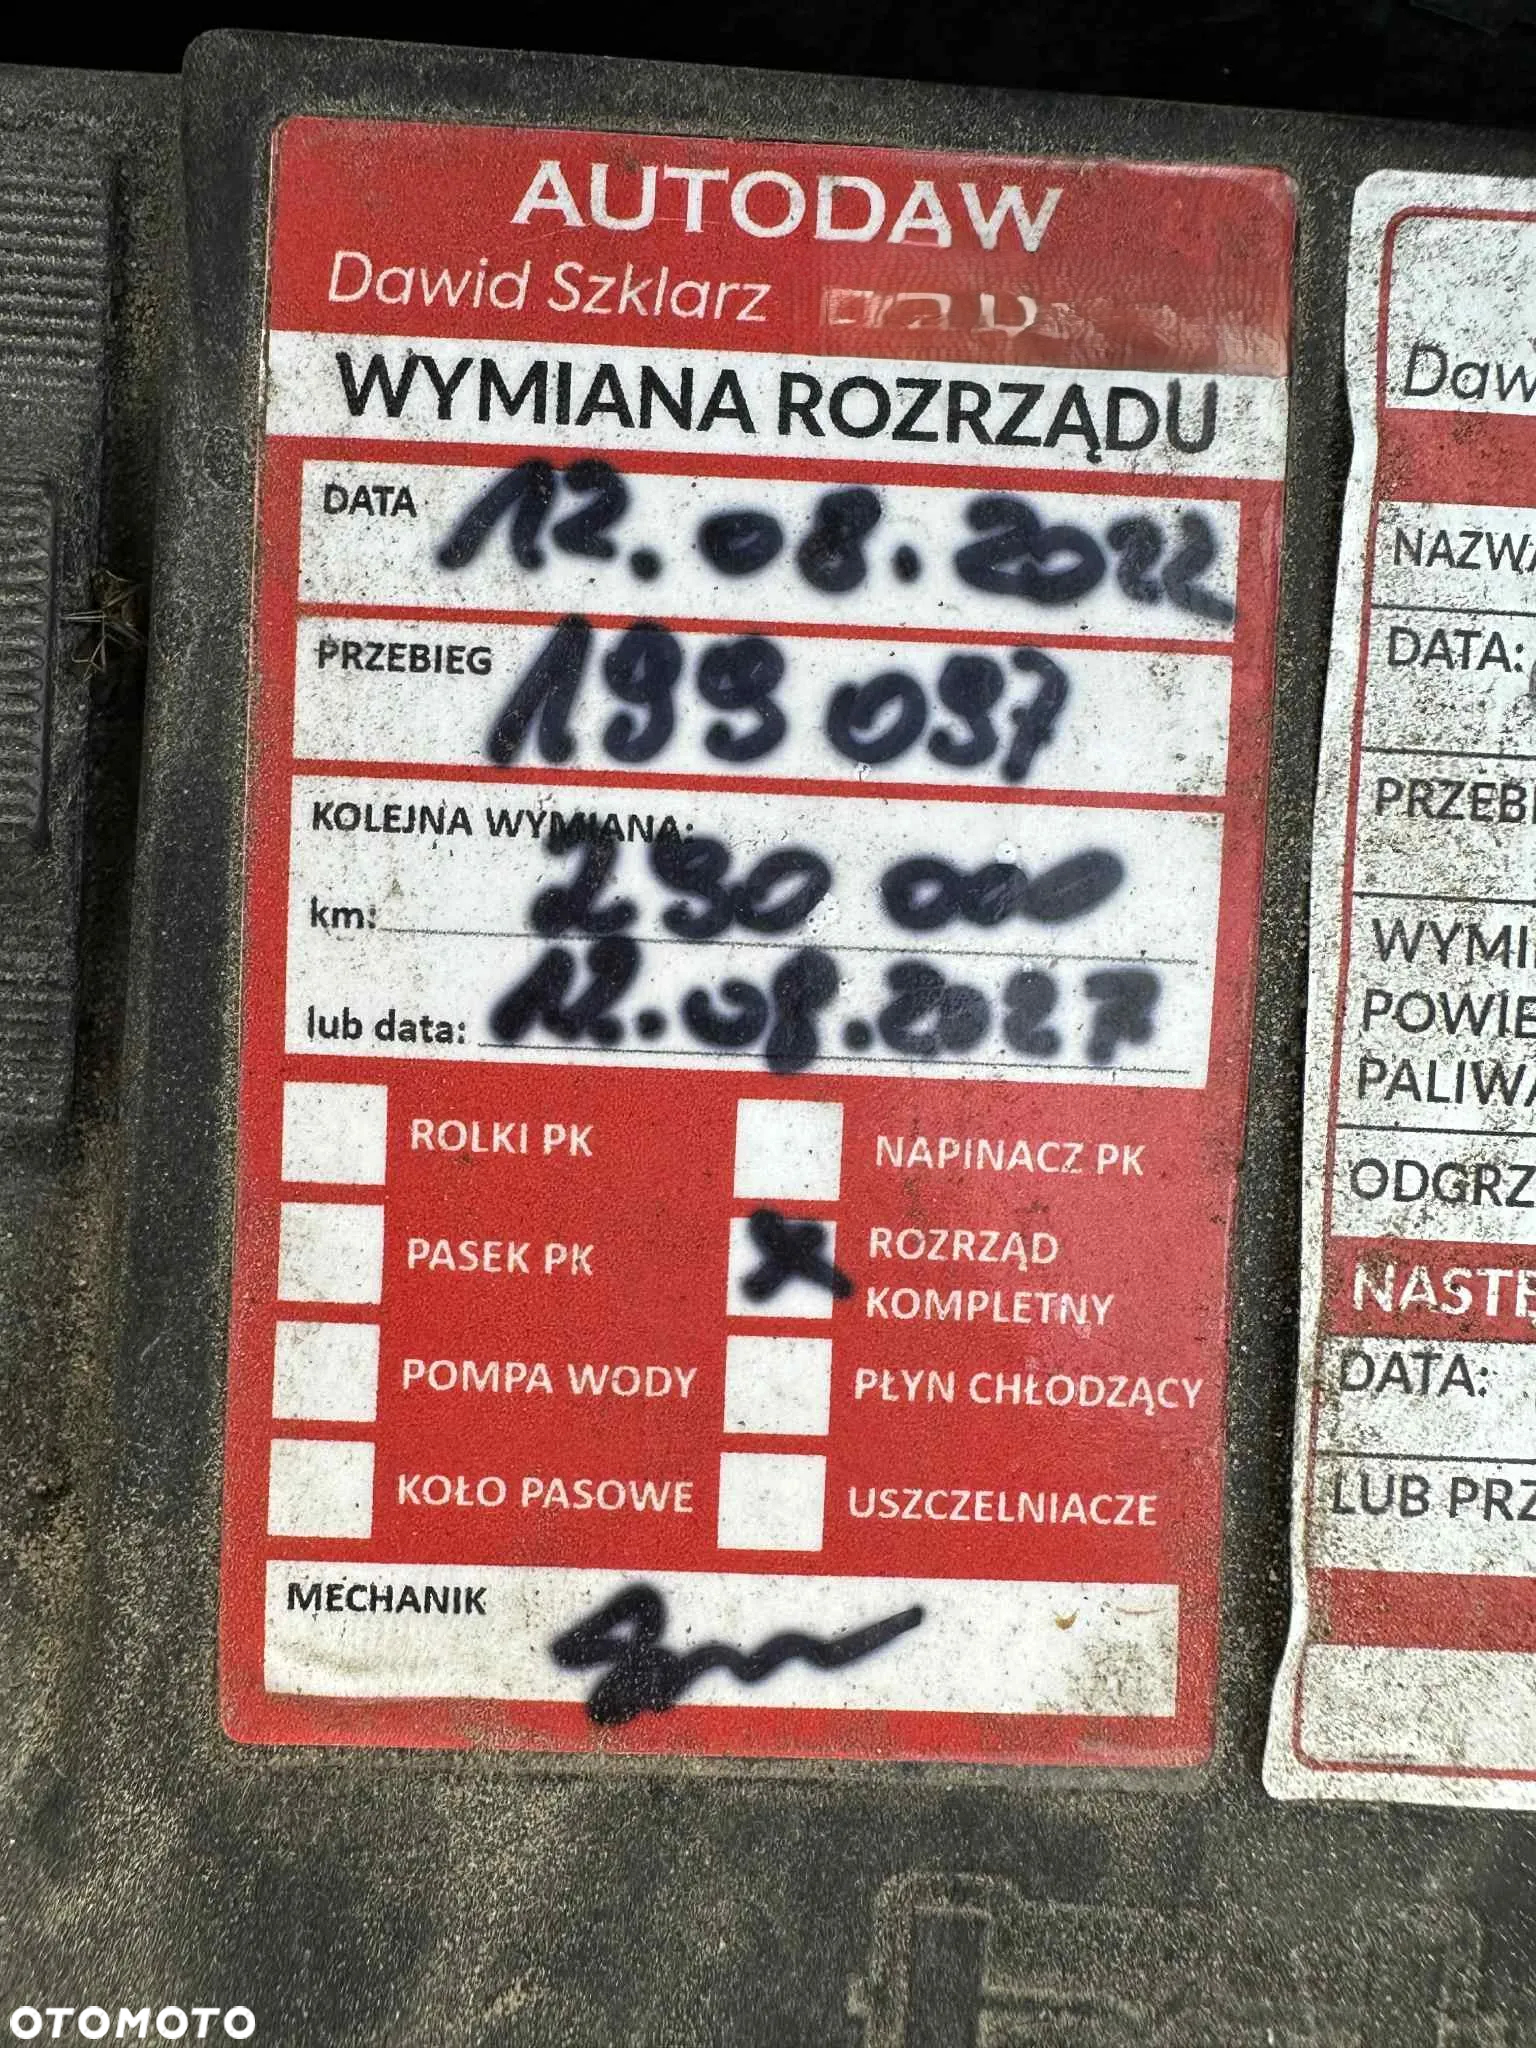 AUTODAW
Dawid Szklarz
WYMIANA ROZRZĄDU
DATA 12.08.2022
PRZEBIEG 199 097
KOLEJNA WYMIANA:
km: 290 000
lub data: 12.08.2027
ROLKI PK
NAPINACZ PK
PASEK PK
X ROZRZĄD
KOMPLETNY
POMPA WODY
PŁYN CHŁODZĄCY
KOŁO PASOWE
USZCZELNIACZE
MECHANIK
Daw
NAZWA
DATA:
PRZEBI
WYMI
POWIE
PALIWA
ODGRZ
NASTĘ
DATA:
LUB PRZ
OTOMOTO